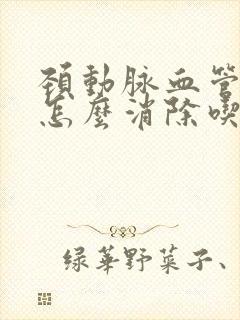 頸動脉血管
怎麼消除喫
绿華野菜子、